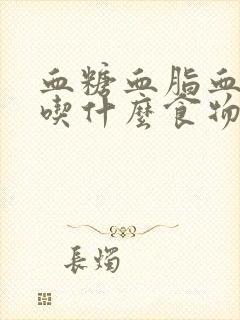 血糖血脂血
喫什麼食物
長燭